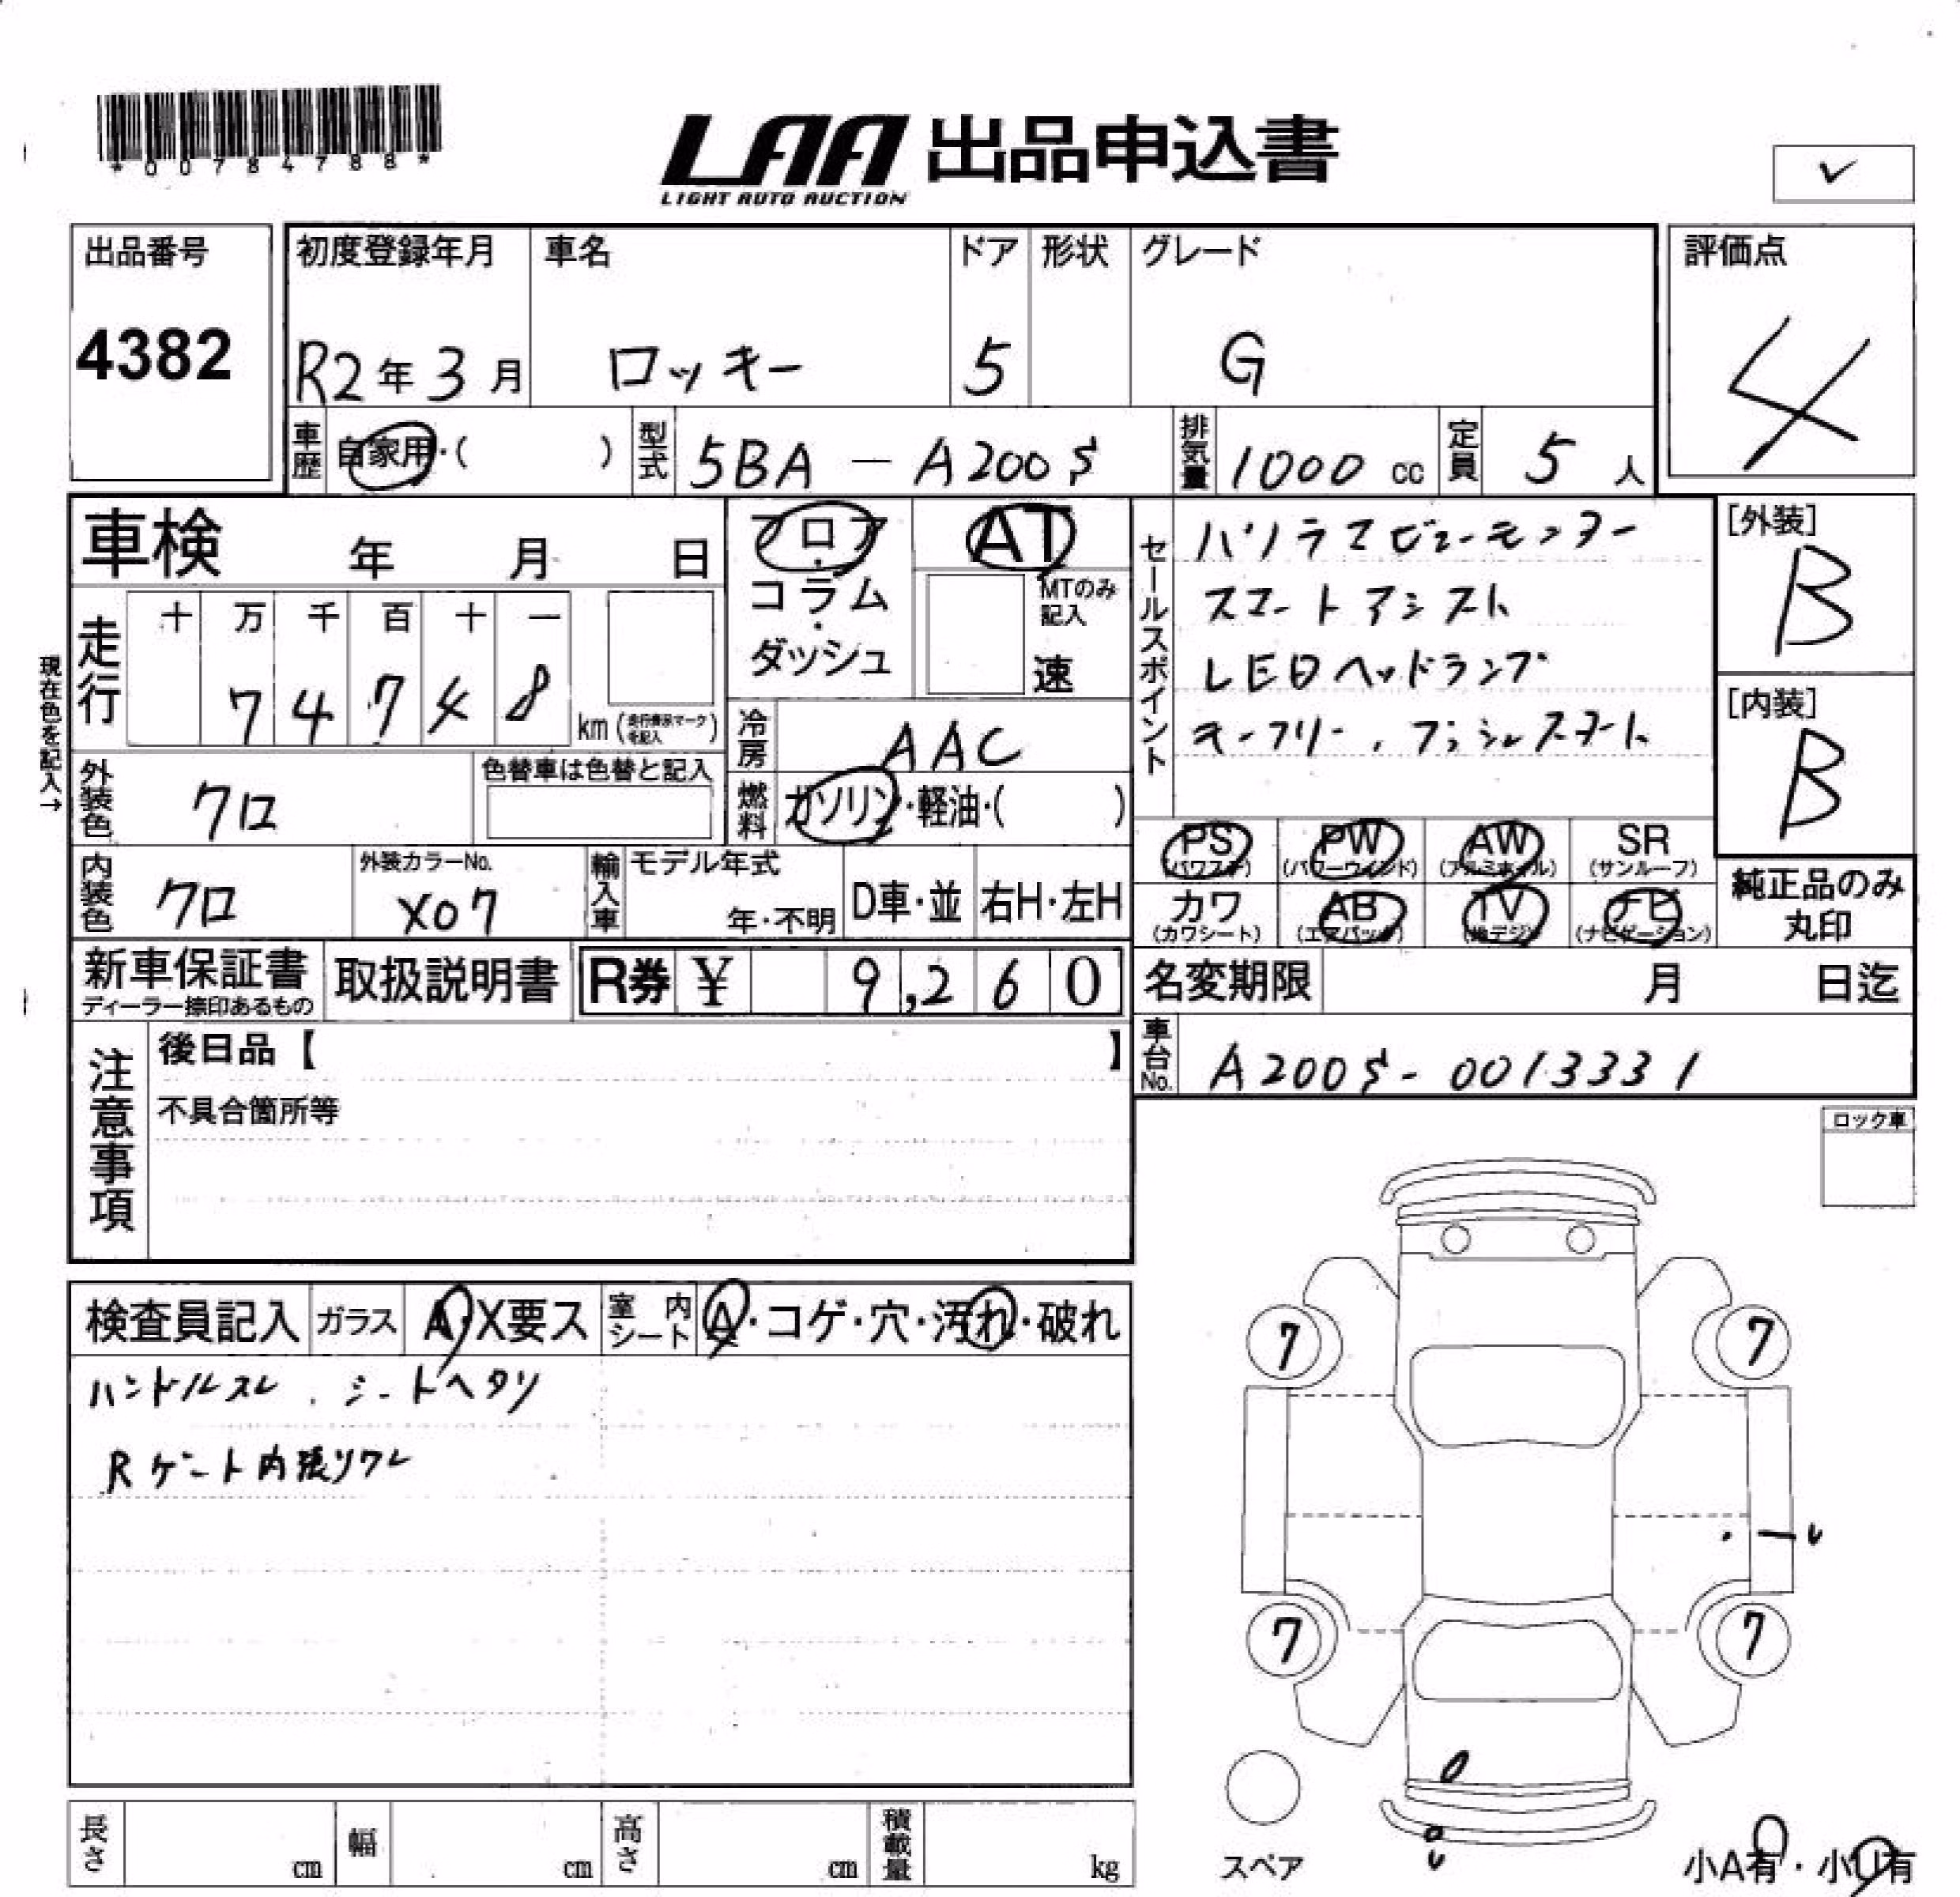 *00784788*
LAA 出品申込書
LIGHT AUTO AUCTION
出品番号 初度登録年月 車名 ドア 形状 グレード 評価点
4382 R2年 3月 ロッキー 5 G 4
車歴 自家用・( ) 型式 5BA - A200S 排気量 1000 cc 定員 5 人
車検 年 月 日 フロア・コラム・ダッシュ AT
MTのみ記入 速
セールスポイント
パノラマビューモニター
スマートアシスト
LEDヘッドランプ
キーフリー、プッシュスタート
[外装]
B
[内装]
B
現在色を記入→
走行 十 万 千 百 十 一
7 4 7 4 8 km (走行表示マークを記入)
冷房 AAC
外装色 クロ 色替車は色替と記入
燃料 ガソリン・軽油・( )
PS (パワステ) PW (パワーウインド) AW (アルミホイル) SR (サンルーフ)
カワ (カワシート) AB (エアバック) TV (地デジ) ナビ (ナビゲーション)
純正品のみ丸印
内装色 クロ 外装カラーNo. X07 輸入車 モデル年式 年・不明 D車・並 右H・左H
新車保証書 ディーラー捺印あるもの 取扱説明書 R券 ¥ 9,260
名変期限 月 日迄
車台No. A200S-0013331
注意事項
後日品【 】
不具合箇所等
ロック車
検査員記入 ガラス A・X要ス 室内シート A・コゲ・穴・汚れ・破れ
ハンドルスレ、シートヘタリ
Rゲート内張リワレ
7 7
7 7
スペア
小A有・小U有
長さ cm 幅 cm 高さ cm 積載量 kg